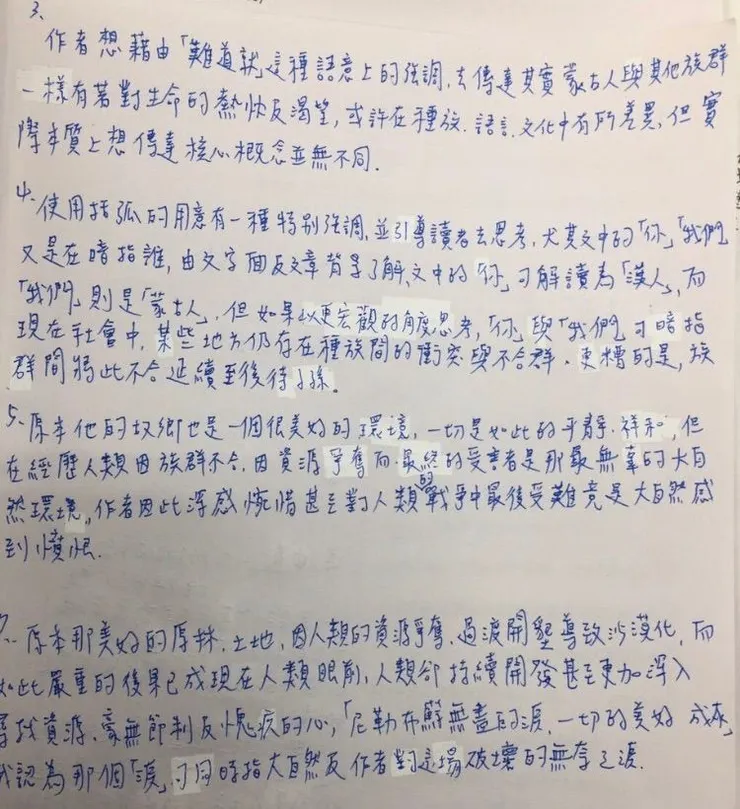 3、
作者想藉由「難道就」這種語意上的強調,去傳達其實蒙古人與其他族群
一樣有著對生命的熱忱及渴望,或許在種族、語言、文化中有所差異,但實
際本質上想傳達核心概念並無不同.
4、使用括弧的用意有一種特別強調,並引導讀者去思考,尤其文中的「你」「我們」
又是在暗指誰,由文字面及文章背景了解,文中的「你」可解讀為「漢人」,而
「我們」則是「蒙古人」,但如果以更宏觀的角度思考,「你」與「我們」可暗指
現在社會中,某些地方仍存在種族間的衝突與不合群、更糟的是,族
群間將此不合延續至後待子孫。
5、原本他的故鄉也是一個很美好的環境,一切是如此的平靜、祥和,但
在經歷人類因族群不合、因資源爭奪而、最終的受害者是那最無辜的大自
然環境,作者因此深感惋惜甚至對人類的戰爭中最後受難竟是大自然感
到憤恨.
7、原本那美好的原林、土地,因人類的資源爭奪、過渡開墾導致沙漠化,而
如此嚴重的後果已成現在人類眼前,人類卻持續開發甚至更加深入
尋找資源、毫無節制及愧疚的心,「尼勒布蘇無盡的淚,一切的美好 成灰」
我認為那個「淚」可同時指大自然及作者對這場破壞的無奈之淚.